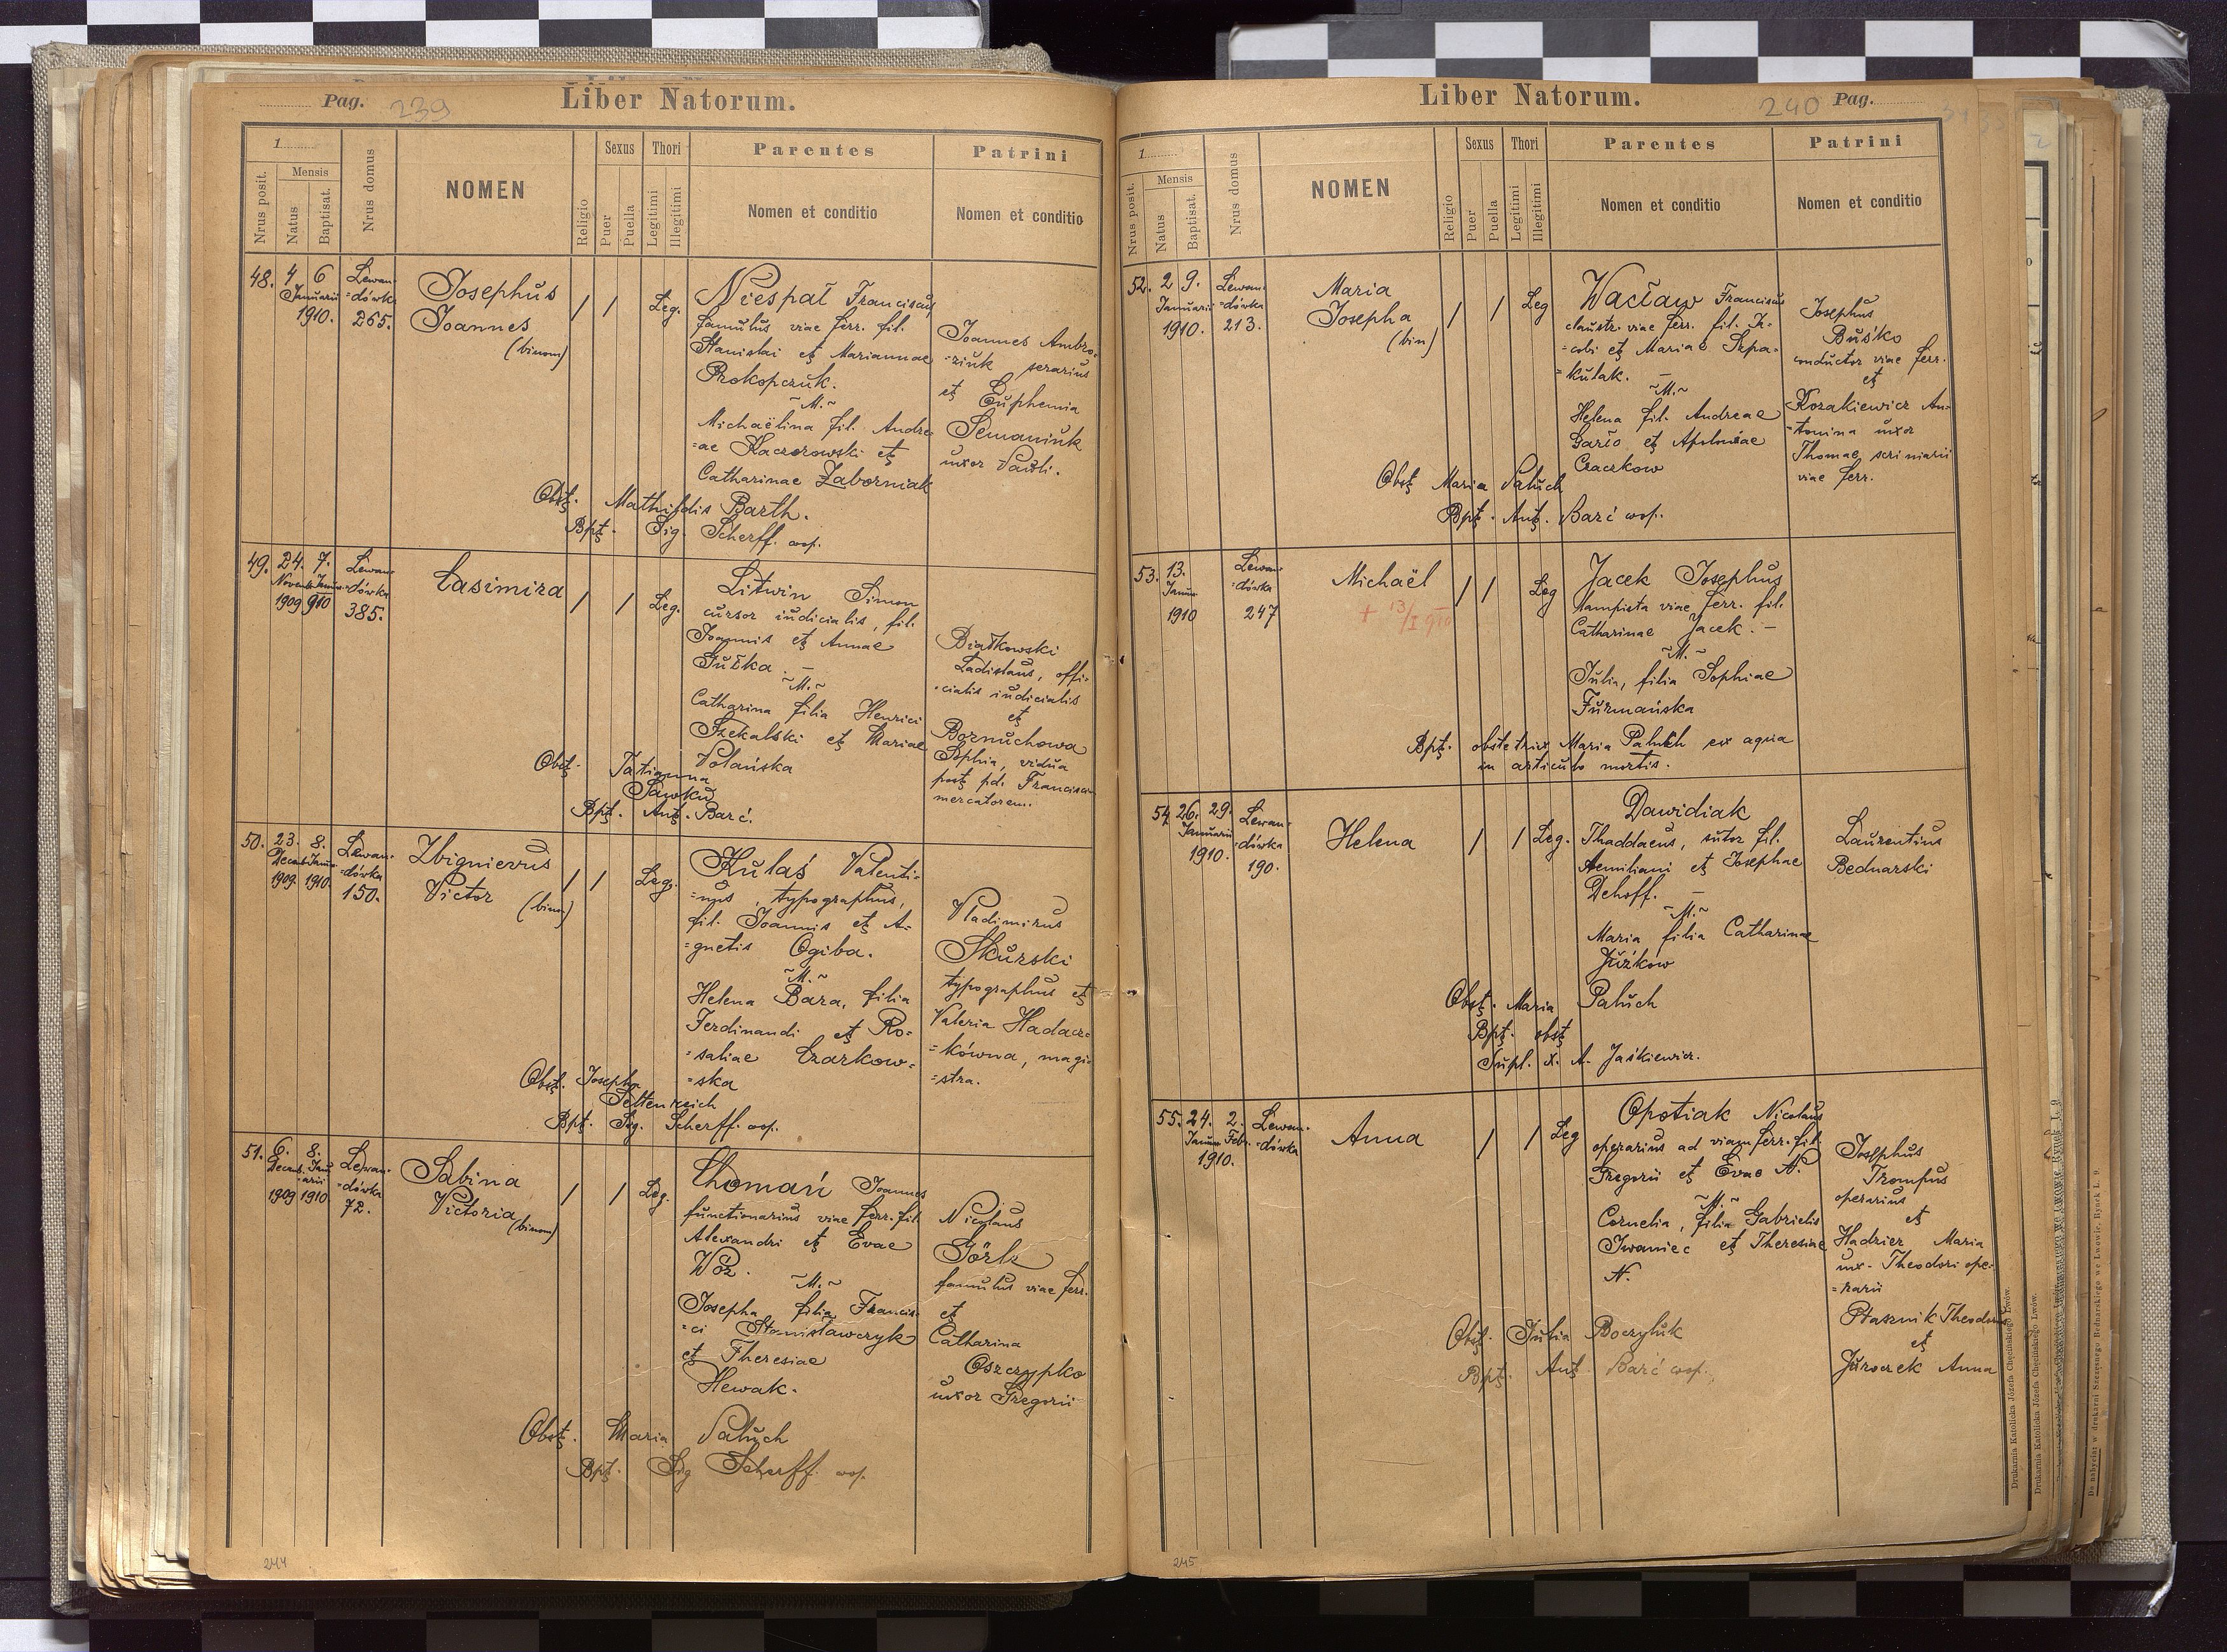 Pag. 239
Liber Natorum.
1
Nrus posit.
Mensis
Natus
Baptisat.
Nrus domus
NOMEN
Religio
Sexus
Puer
Puella
Thori
Legitimi
Illegitimi
Parentes
Nomen et conditio
Patrini
Nomen et conditio
48. 4 6 Lewan-
Januarii =dówka
1910. 265.
Josephus
Joannes
(binom)
/ / Leg.
Niespał Franciscus
famulus viae ferr. fil.
Stanislai et Mariannae
Prokopczuk.
~M.~
Michaëlina fil. Andre-
=ae Kaczorowski et
Catharinae Zaborniak
Joannes Ambro-
=ziuk serarius
et Euphemia
Semaniuk
uxor Pauli.
Obst. Mathildis Barth.
Bpt. Sig. Scherff. wsp.
49. 24. 7. Lewan-
Novemb. Janu. =dówka
1909 910 385.
Casimira
/ / Leg.
Litwin Simon
cursor iudicialis, fil.
Joannis et Annae
~M.~
Catharina filia Henrici
et Mariae
Polańska
Białkowski
Ladislaus, offi-
=cialis iudicialis
et
Bornuchowa
Sophia, vidua
post pd. Franciscum
mercatorem.
Obst. Tatianna
Sawků
Bpt. Ant. Barć.
50. 23. 8. Lewan-
Decemb. Janu. =dówka
1909. 1910. 150.
Zbignievus
Victor (binom)
/ / Leg.
Kulaś Valenti-
=nus, typographus,
fil. Joannis et A-
=gnetis Ogiba.
~M.~
Helena Bara, filia
Ferdinandi et Ro=
=saliae Czarkow=
=ska
Vladimirus
Skurski
typographus et
Valeria Hadacz=
=kówna, magi-
=stra.
Obst. Josepha
Seltenreich
Bpt. Sig. Scherff. wsp.
51. 6. 8. Lewan-
Decemb. Janu =dówka
arii
1909 1910 72.
Sabina
Victoria
(binom)
/ / Leg.
Chomań Joannes
functionarius viae ferr. fil.
Alexandri et Evae
Wóz.
~M.~
Josepha filia Francis-
=ci Stanisławczyk
et Theresiae
Hewak.
Nicolaus
Görlz
famulus viae ferr.
et
Catharina
Oszczypko
uxor Gregorii
Obst. Maria Paluch
Bpt. Sig Scherff. wsp.
244
Liber Natorum.
240 Pag.
1
Nrus posit.
Mensis
Natus
Baptisat.
Nrus domus
NOMEN
Religio
Sexus
Puer
Puella
Thori
Legitimi
Illegitimi
Parentes
Nomen et conditio
Patrini
Nomen et conditio
52. 2 9. Lewan-
Januarii =dówka
1910. 213.
Maria
Josepha
(bin)
/ / Leg
Wacław Franciscus
claustr. viae ferr. fil. Ja-
=cobi et Mariae Szpa-
=kulak. –
~M.~
Helena fil. Andreae
Garło et Apoloniae
Czaczkow
Josephus
Buśko
conductor viae ferr.
et
Kozakiewicz An-
=tonina uxor
Thomae, scriniarii
viae ferr.
Obst Maria Paluch
Bpt. Ant. Barć wsp.
53. 13. Lewan-
Janu. =dówka
1910 247
Michaël
+ 13/I 910
/ / Leg
Jacek Josephus
lampista viae ferr. fil.
Catharinae Jacek. –
~M.~
Julia, filia Sophiae
Furmańska
Bpt. obstetrix Maria Paluch ex aqua
in articulo mortis.
54. 26. 29. Lewan-
Januarii =dówka
1910. 190.
Helena
/ / Leg.
Dawidiak
Thaddaeus, sutor fil.
Aemiliani et Josephae
Dehoff. –
~M.~
Maria filia Catharinae
Juźków
Laurentius
Bednarski
Obst. Maria Paluch
Bpt. obst
Supl. x. A. Jaśkiewicz.
55. 24. 2. Lewan-
Janu. Febr. =dówka
1910.
Anna
/ / Leg
Opotiak Nicolaus
operarius ad viam ferr. fil.
Gregorii et Evae N.
~M.~
Cornelia, filia Gabrielis
Iwaniec et Theresiae
N.
Josephus
Trompus
operarius
et
Hadzier Maria
ux. Theodori ope-
=rarii
Ptasznik Theodorus
et
Juroczek Anna
Obst. Julia Boczyluk
Bpt. Ant. Barć wsp.
245
Drukarnia Katolicka Józefa Chęcińskiego Lwów.
Drukarnia Katolicka Józefa Chęcińskiego Lwów.
Do nabycia w drukarni Szczęsnego Bednarskiego we Lwowie. Rynek L. 9.